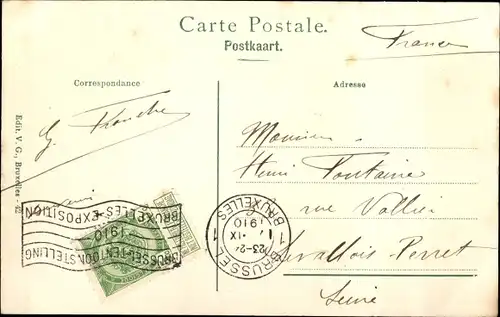 Carte Postale.
Postkaart.
France
Correspondance
Adresse
Edit. V. G., Bruxelles - 42
Monsieur
Henri Fontaine
rue Vallier
Levallois Perret
Seine
BRUXELLES-EXPOSITION
1910
BRUSSEL-TENTOONSTELLING
1 BRUSSEL 1
23-24
1 IX
1910
BRUXELLES